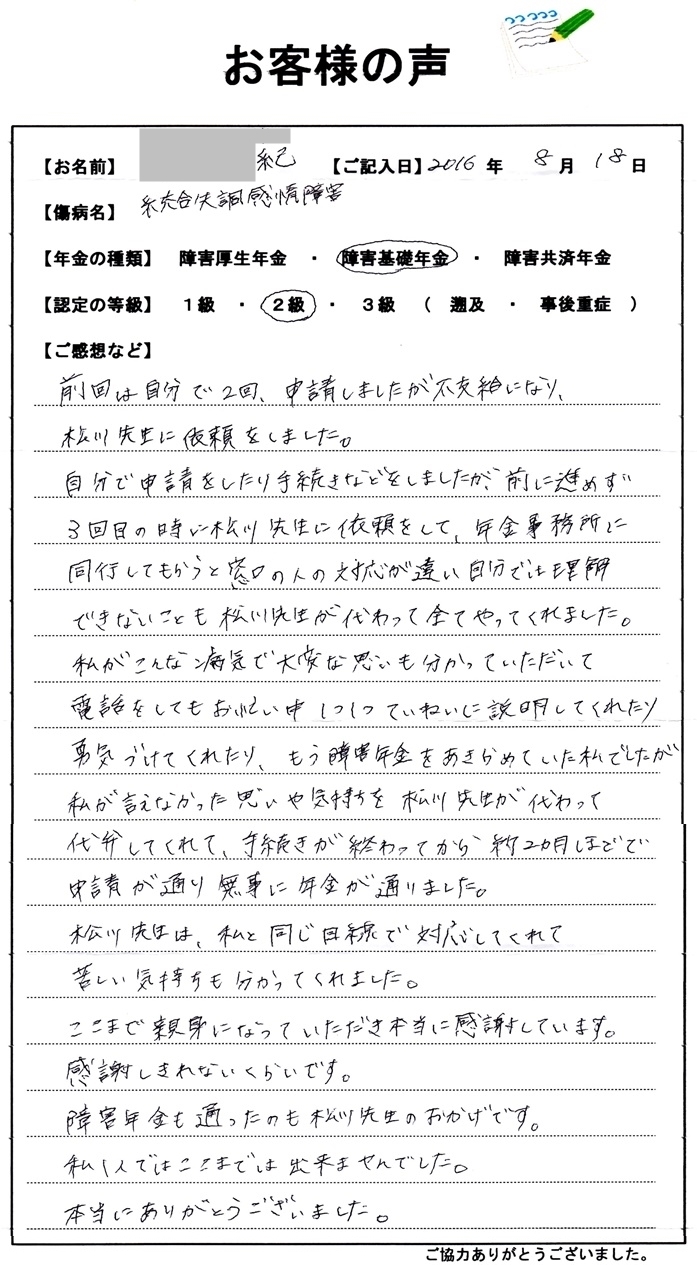 お客様の声
【お名前】 紀 【ご記入日】2016年 8月 18日
【傷病名】 統合失調感情障害
【年金の種類】 障害厚生年金 ・ 障害基礎年金 ・ 障害共済年金
【認定の等級】 1級 ・ 2級 ・ 3級 （ 遡及 ・ 事後重症 ）
【ご感想など】
前回は自分で2回、申請しましたが不支給になり、
松川先生に依頼をしました。
自分で申請をしたり手続きなどをしましたが、前に進めず
3回目の時に松川先生に依頼をして、年金事務所に
同行してもらうと窓口の人の対応が違い自分では理解
できないことも松川先生が代わって全てやってくれました。
私がこんな病気で大変な思いも分かっていただいて
電話をしてもお忙い中1つ1つていねいに説明してくれたり
勇気づけてくれたり、もう障害年金をあきらめていた私でしたが
私が言えなかった思いや気持ちを松川先生が代わって
代弁してくれて、手続きが終わってから約2カ月ほどで
申請が通り無事に年金が通りました。
松川先生は、私と同じ目線で対応してくれて
苦しい気持ちも分かってくれました。
ここまで親身になっていただき本当に感謝しています。
感謝しきれないくらいです。
障害年金も通ったのも松川先生のおかげです。
私1人ではここまでは出来ませんでした。
本当にありがとうございました。
ご協力ありがとうございました。